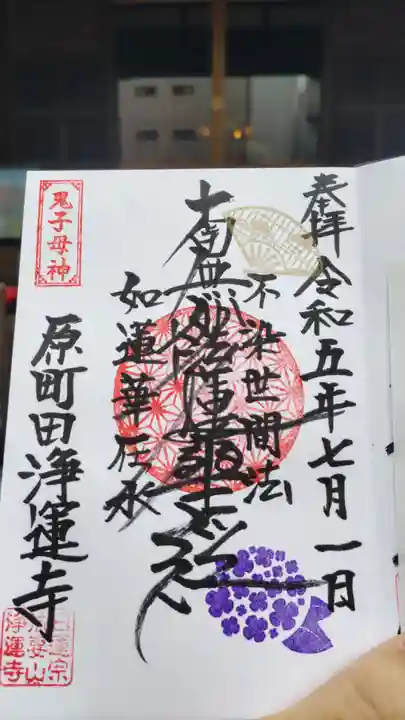 奉拝 令和五年七月一日
不染世間法
南無妙法蓮華経
如蓮華在水
鬼子母神
原町田浄運寺